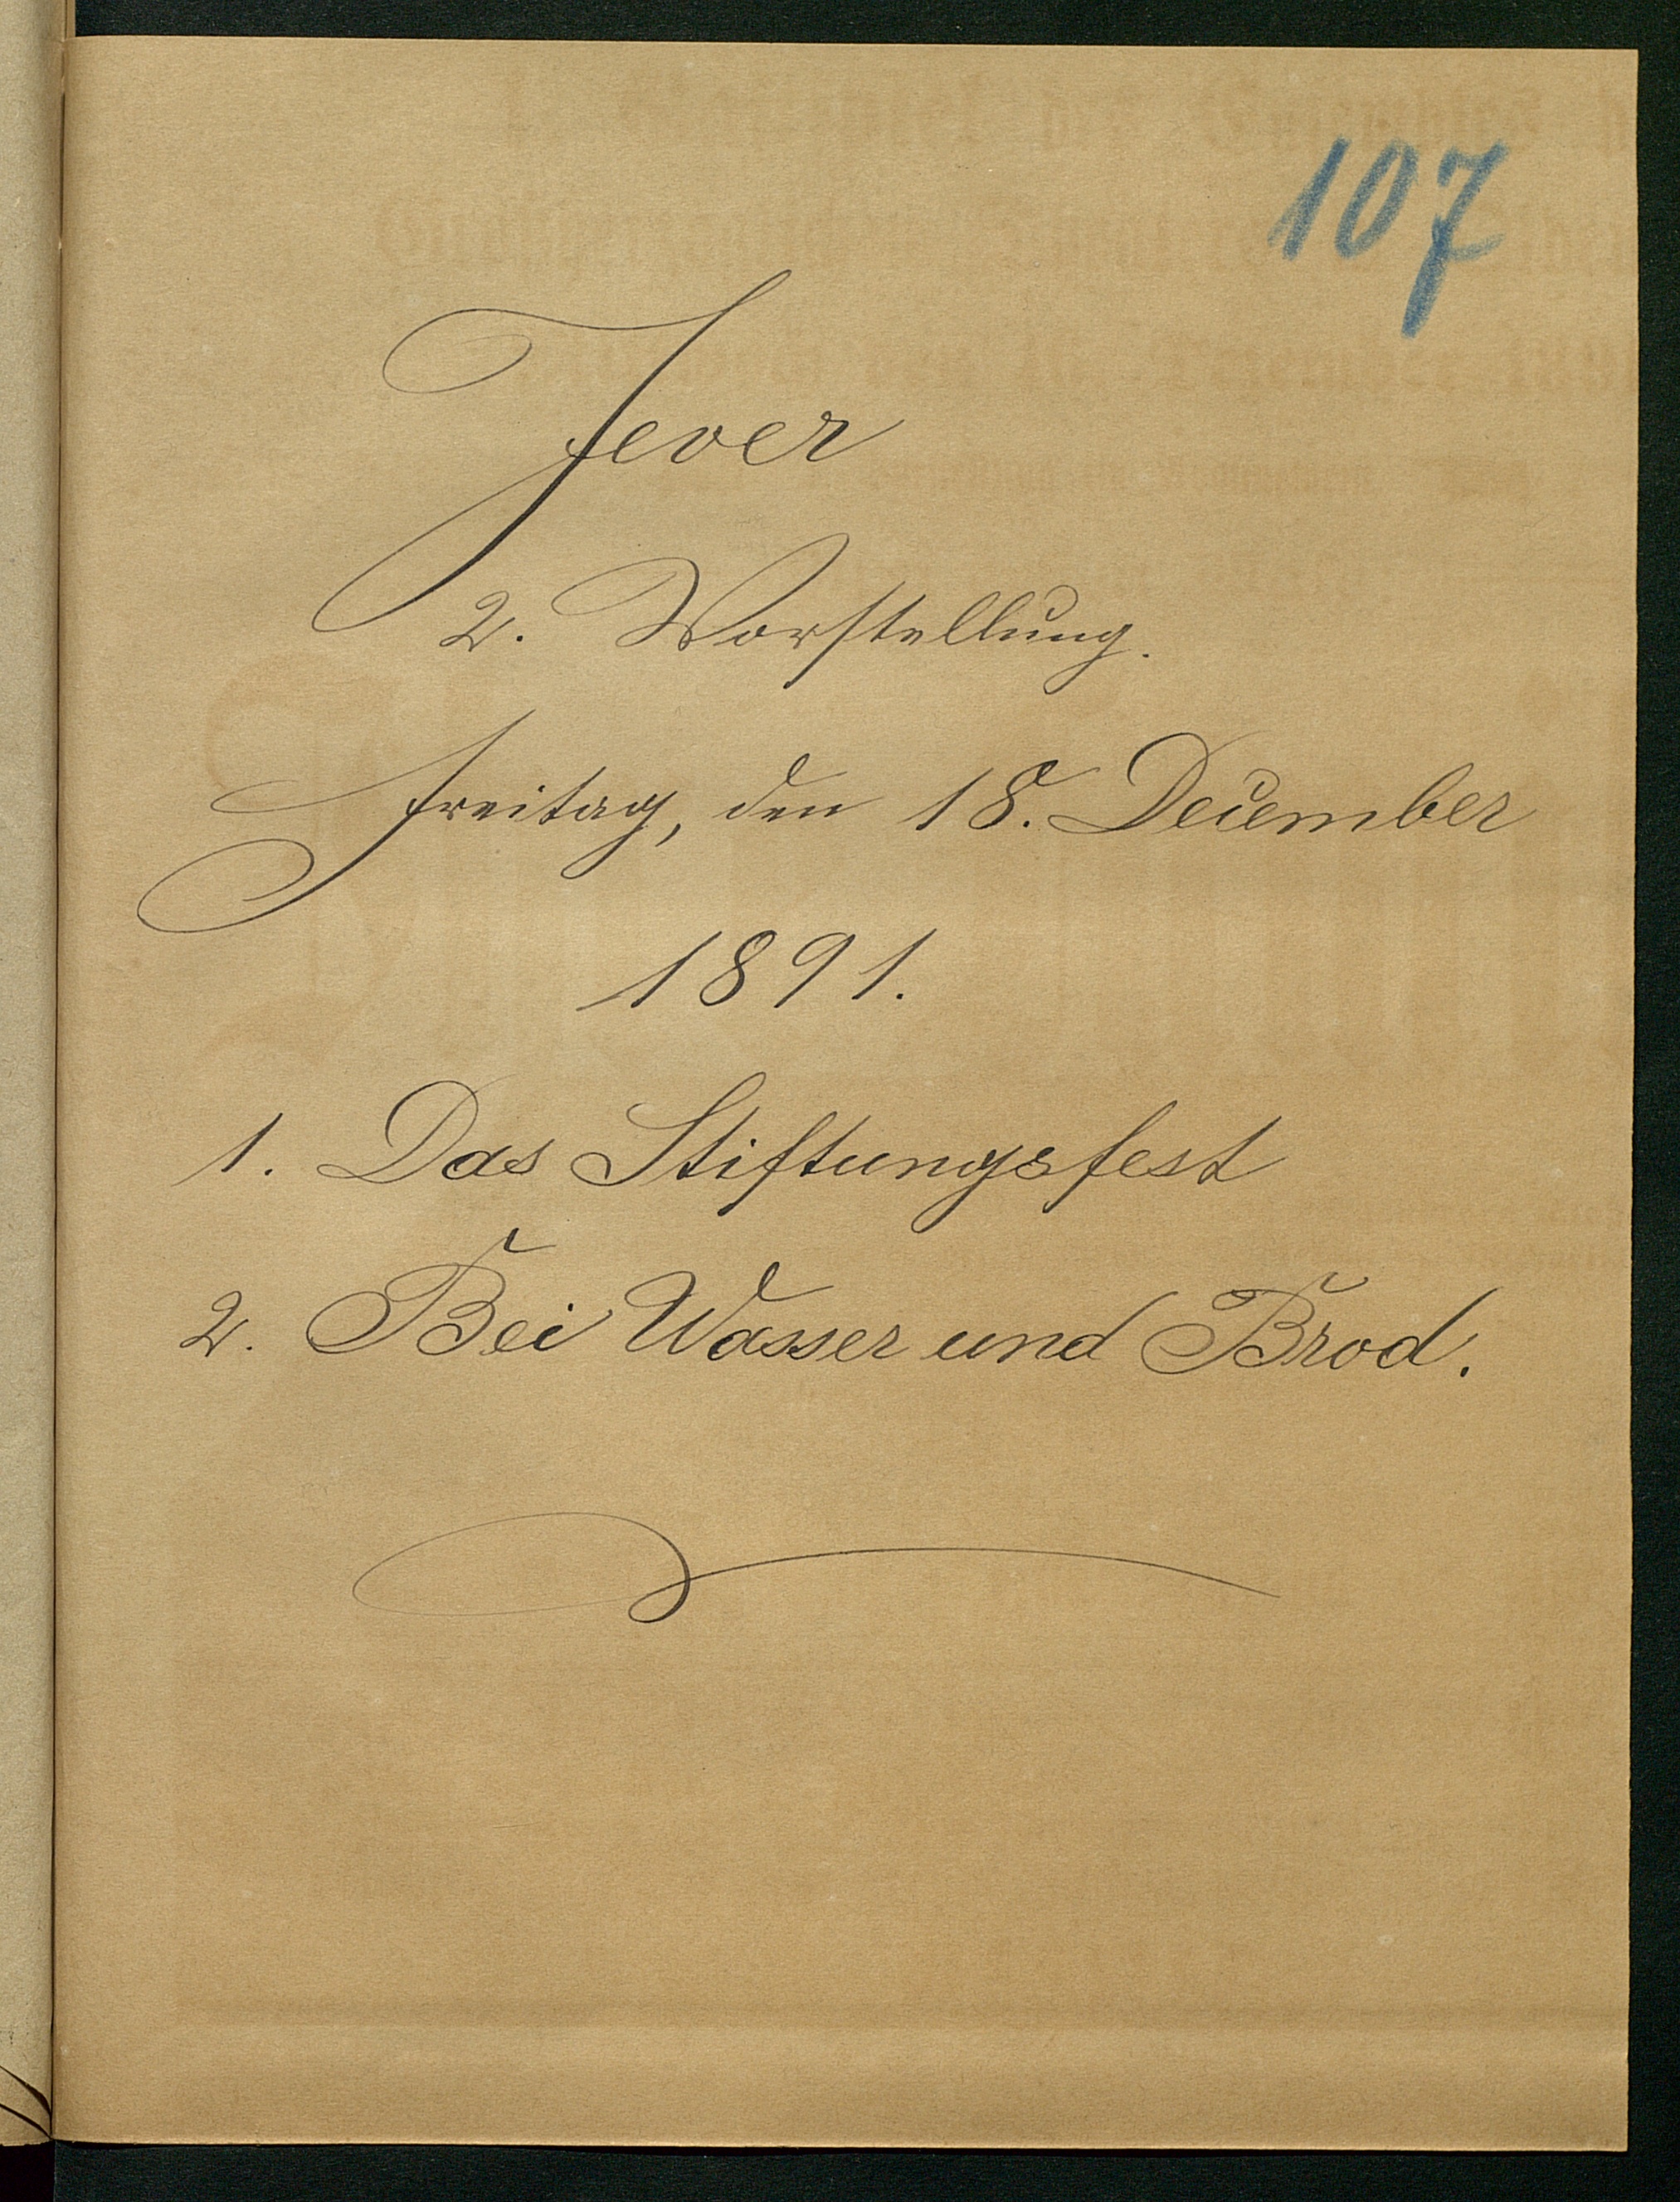 107
Jever
2. Vorstellung.
Freitag, den 18. December
1891.
1. Das Stiftungsfest
2. Bei Wasser und Brod.